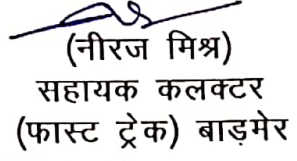 (नीरज मिश्र)
सहायक कलक्टर
(फास्ट ट्रेक) बाड़मेर